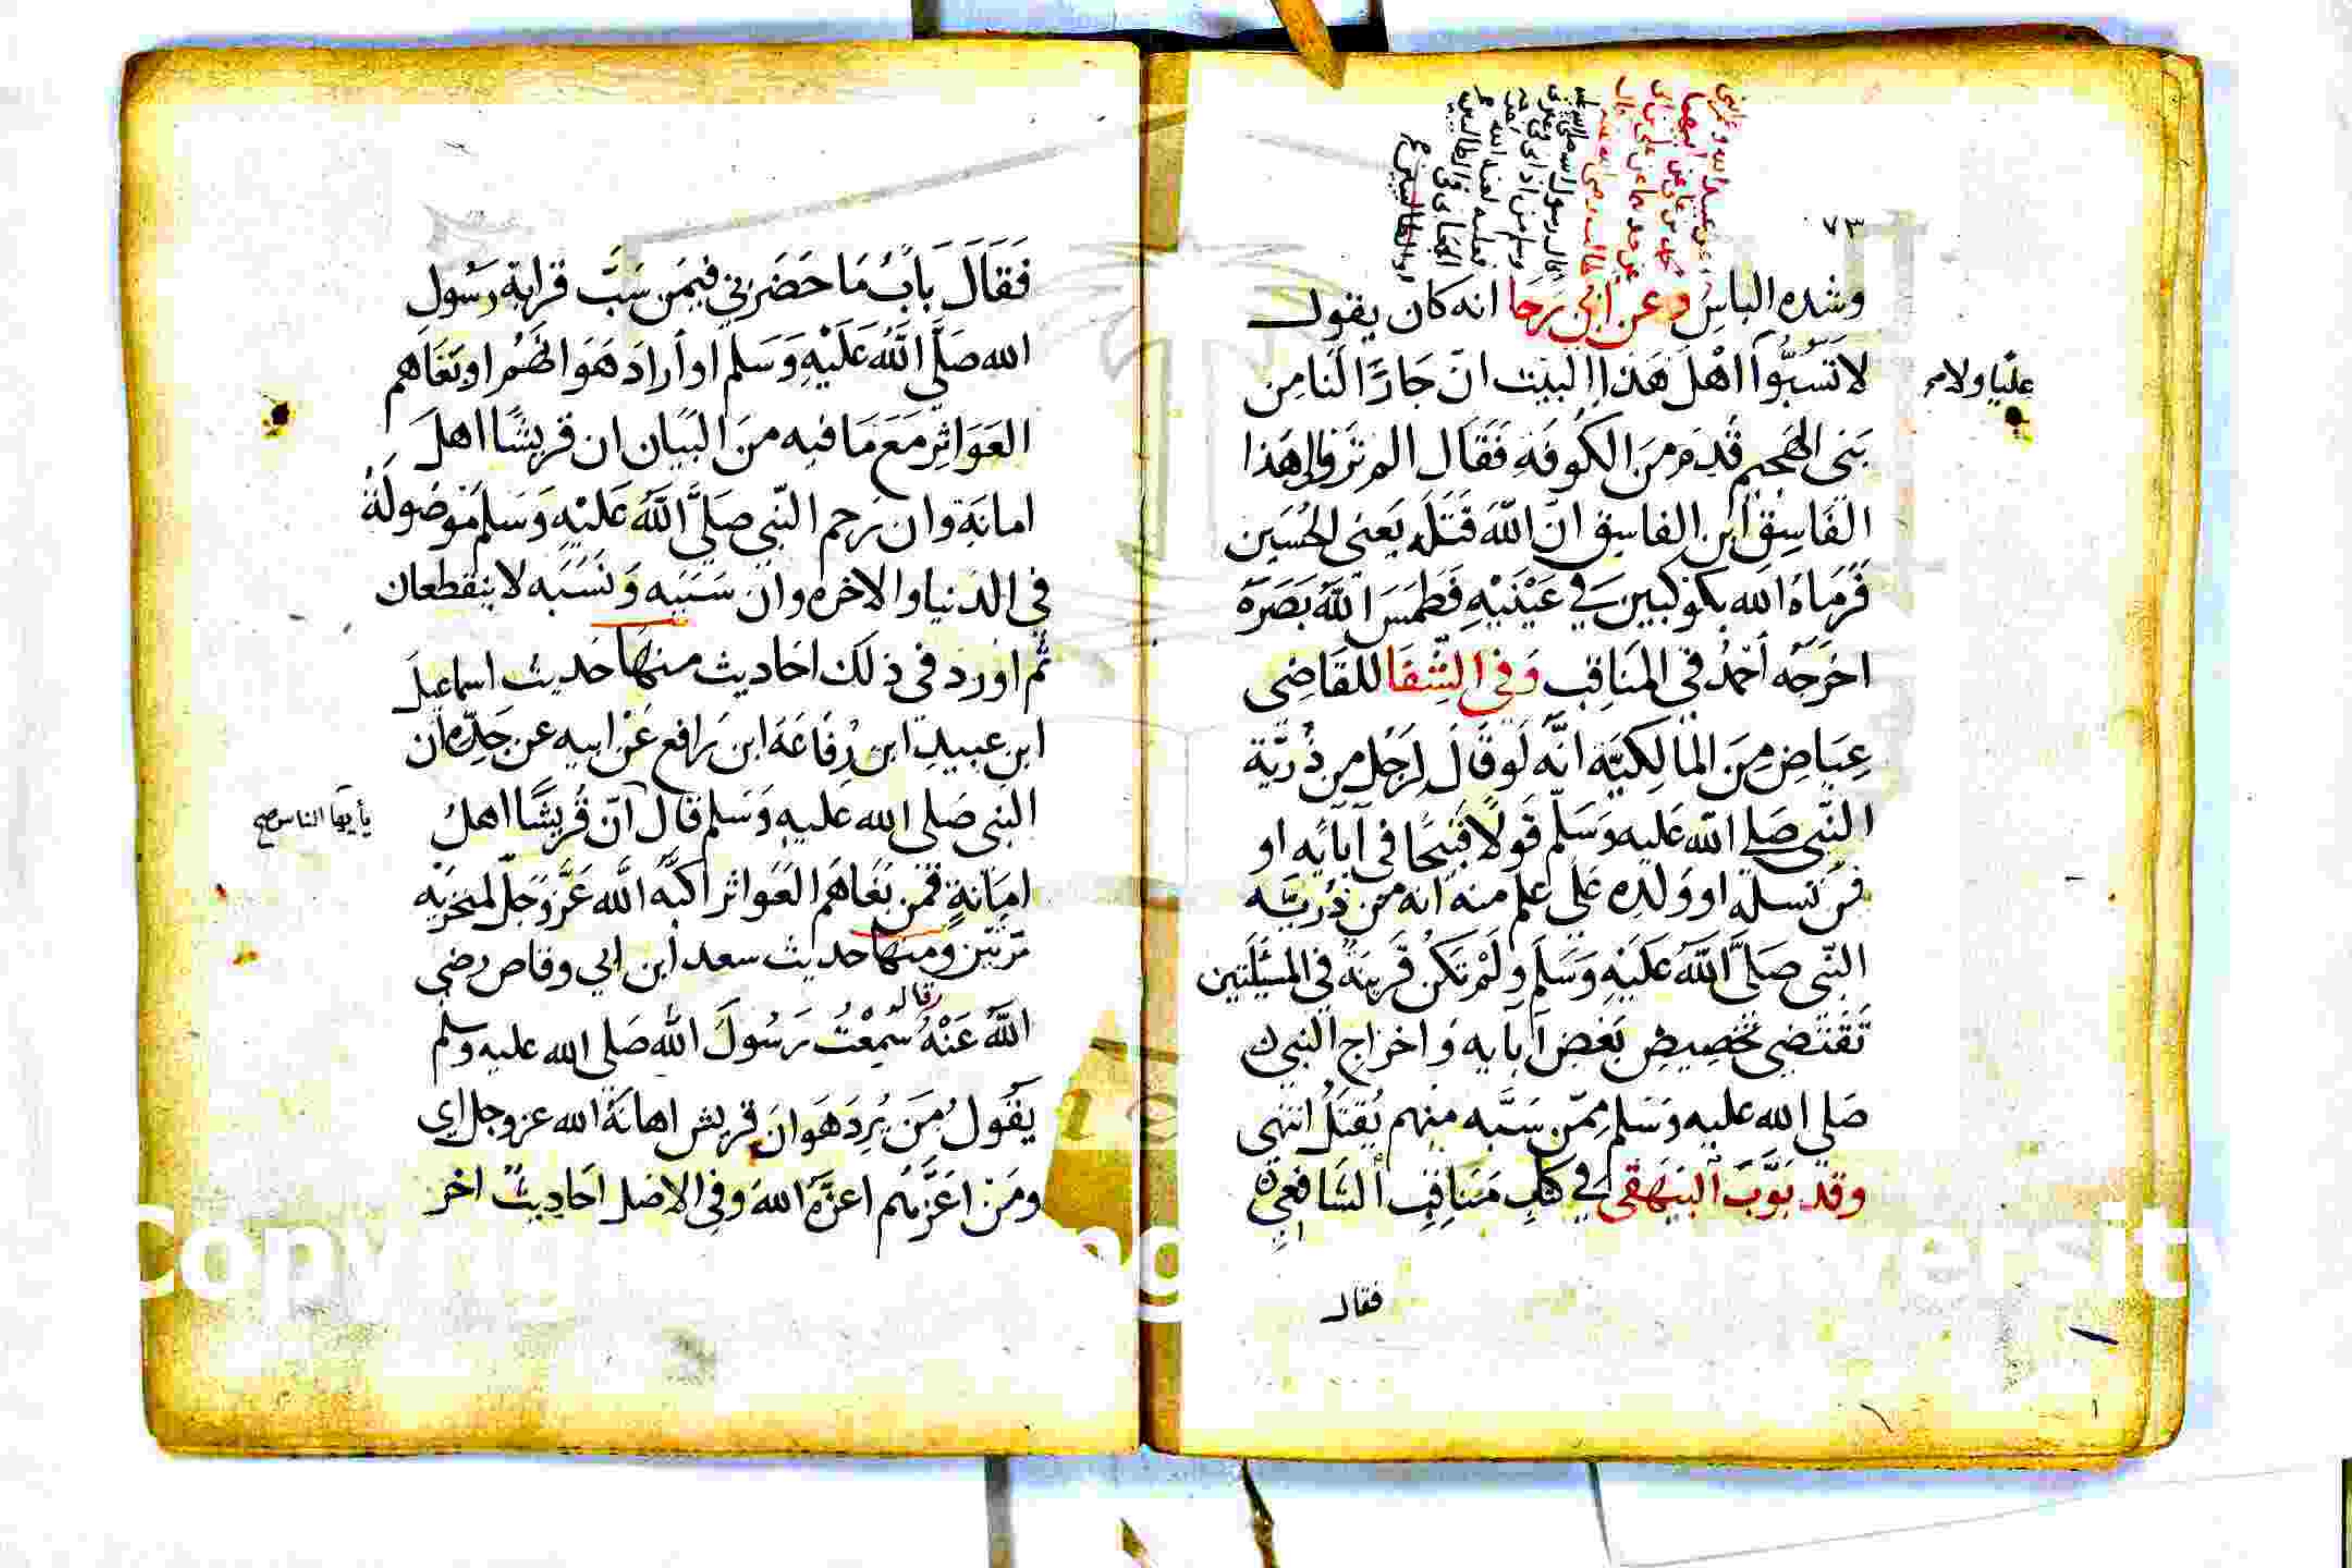 ٧٣
وشده الباس وعن أبي رجا انه كان يقول
لا تَسُبُّوا اهْلَ هَذا البيت انّ جَارًا لنا مِن
عليّا ولا
بَنى الهجيم قَدِمَ مِنَ الكُوفَةِ فَقَال الم تَرَوا إلى هَذا
الفَاسِقُ ابن الفاسِق انّ اللهَ قَتَلَه يَعنى الحُسَين
فَرَمَاهُ الله بكوكبين في عَيْنَيْهِ فَطَمَسَ اللهُ بَصَرَهُ
اخرَجَه أحمدُ في المنَاقِب وَفي الشِّفَا للقَاضِى
عِيَاضِ مِنَ المَالِكِيَّة انَّه لَو قَالَ لِرَجُل مِن ذُرِّيَّة
النَّبِى صَلى الله عَليه وَسَلّم قَولًا قَبِيحًا في آبَايِه او
من نَسله او وَلدِه عَلى عِلم منه انه مِن ذُريّة
النّبى صَلَّى اللهُ عَلَيْهِ وَسَلم وَلَمْ تَكن قَرِينَةٌ في المسْئَلَتين
تَقْتَضِى تَخصِيصَ بَعْض آبايه وَاخراج النبي
صَلى الله عليه وَسَلم مِمّن سَبَّه منهم يُقتَلُ انتهى
وقد بَوَّبَ البَيهَقى في كتاب مَنَاقِب الشَافِعِي
فقال
فَقَالَ بابُ مَا حَضَرَني فيمَن سَبَّ قَرابة رَسُول
الله صَلَّى اللهُ عَلَيْهِ وَسَلم او أرادَ هَوَانَهُم او بَغَاهم
العَوَاثِر مَعَ مَا فيه مِنَ البَيَان ان قريشًا اهلَ
امانَة وان رَحِم النّبي صَلَّى اللهُ عَلَيْهِ وَسَلم مَوْصُولَةٌ
في الدنيا والاخره وان سَبَبَه وَنَسَبَه لا ينقطعان
ثُم اورَدَ في ذلك احَاديث منها حَديث اسماعيلَ
ابنِ عبيدِ ابن رِفَاعَة ابن رَافع عَنْ ابيه عن جَدِّه ان
النبى صَلى الله عليه وَسَلم قال انّ قُريشًا اهلُ
يأيها الناس صح
امَانَةٍ فمن بَغَاهُم العَوَاثر اكبَّه الله عَزَّ وَجلّ لمنخرَيْه
مَرّتَيْن وَمنها حَديث سعد ابن ابي وقاص رضى
قال
اللهُ عَنْهُ سَمِعْتُ رَسُولَ الله صَلى الله عليه وسلم
يَقُولُ مَن يُرِدْ هَوَانَ قريش اهانَهُ الله عز وجل اى
ومَن اعَزَّهُم اعزَّهُ اللهُ وَفي الاصل احَاديث اخر